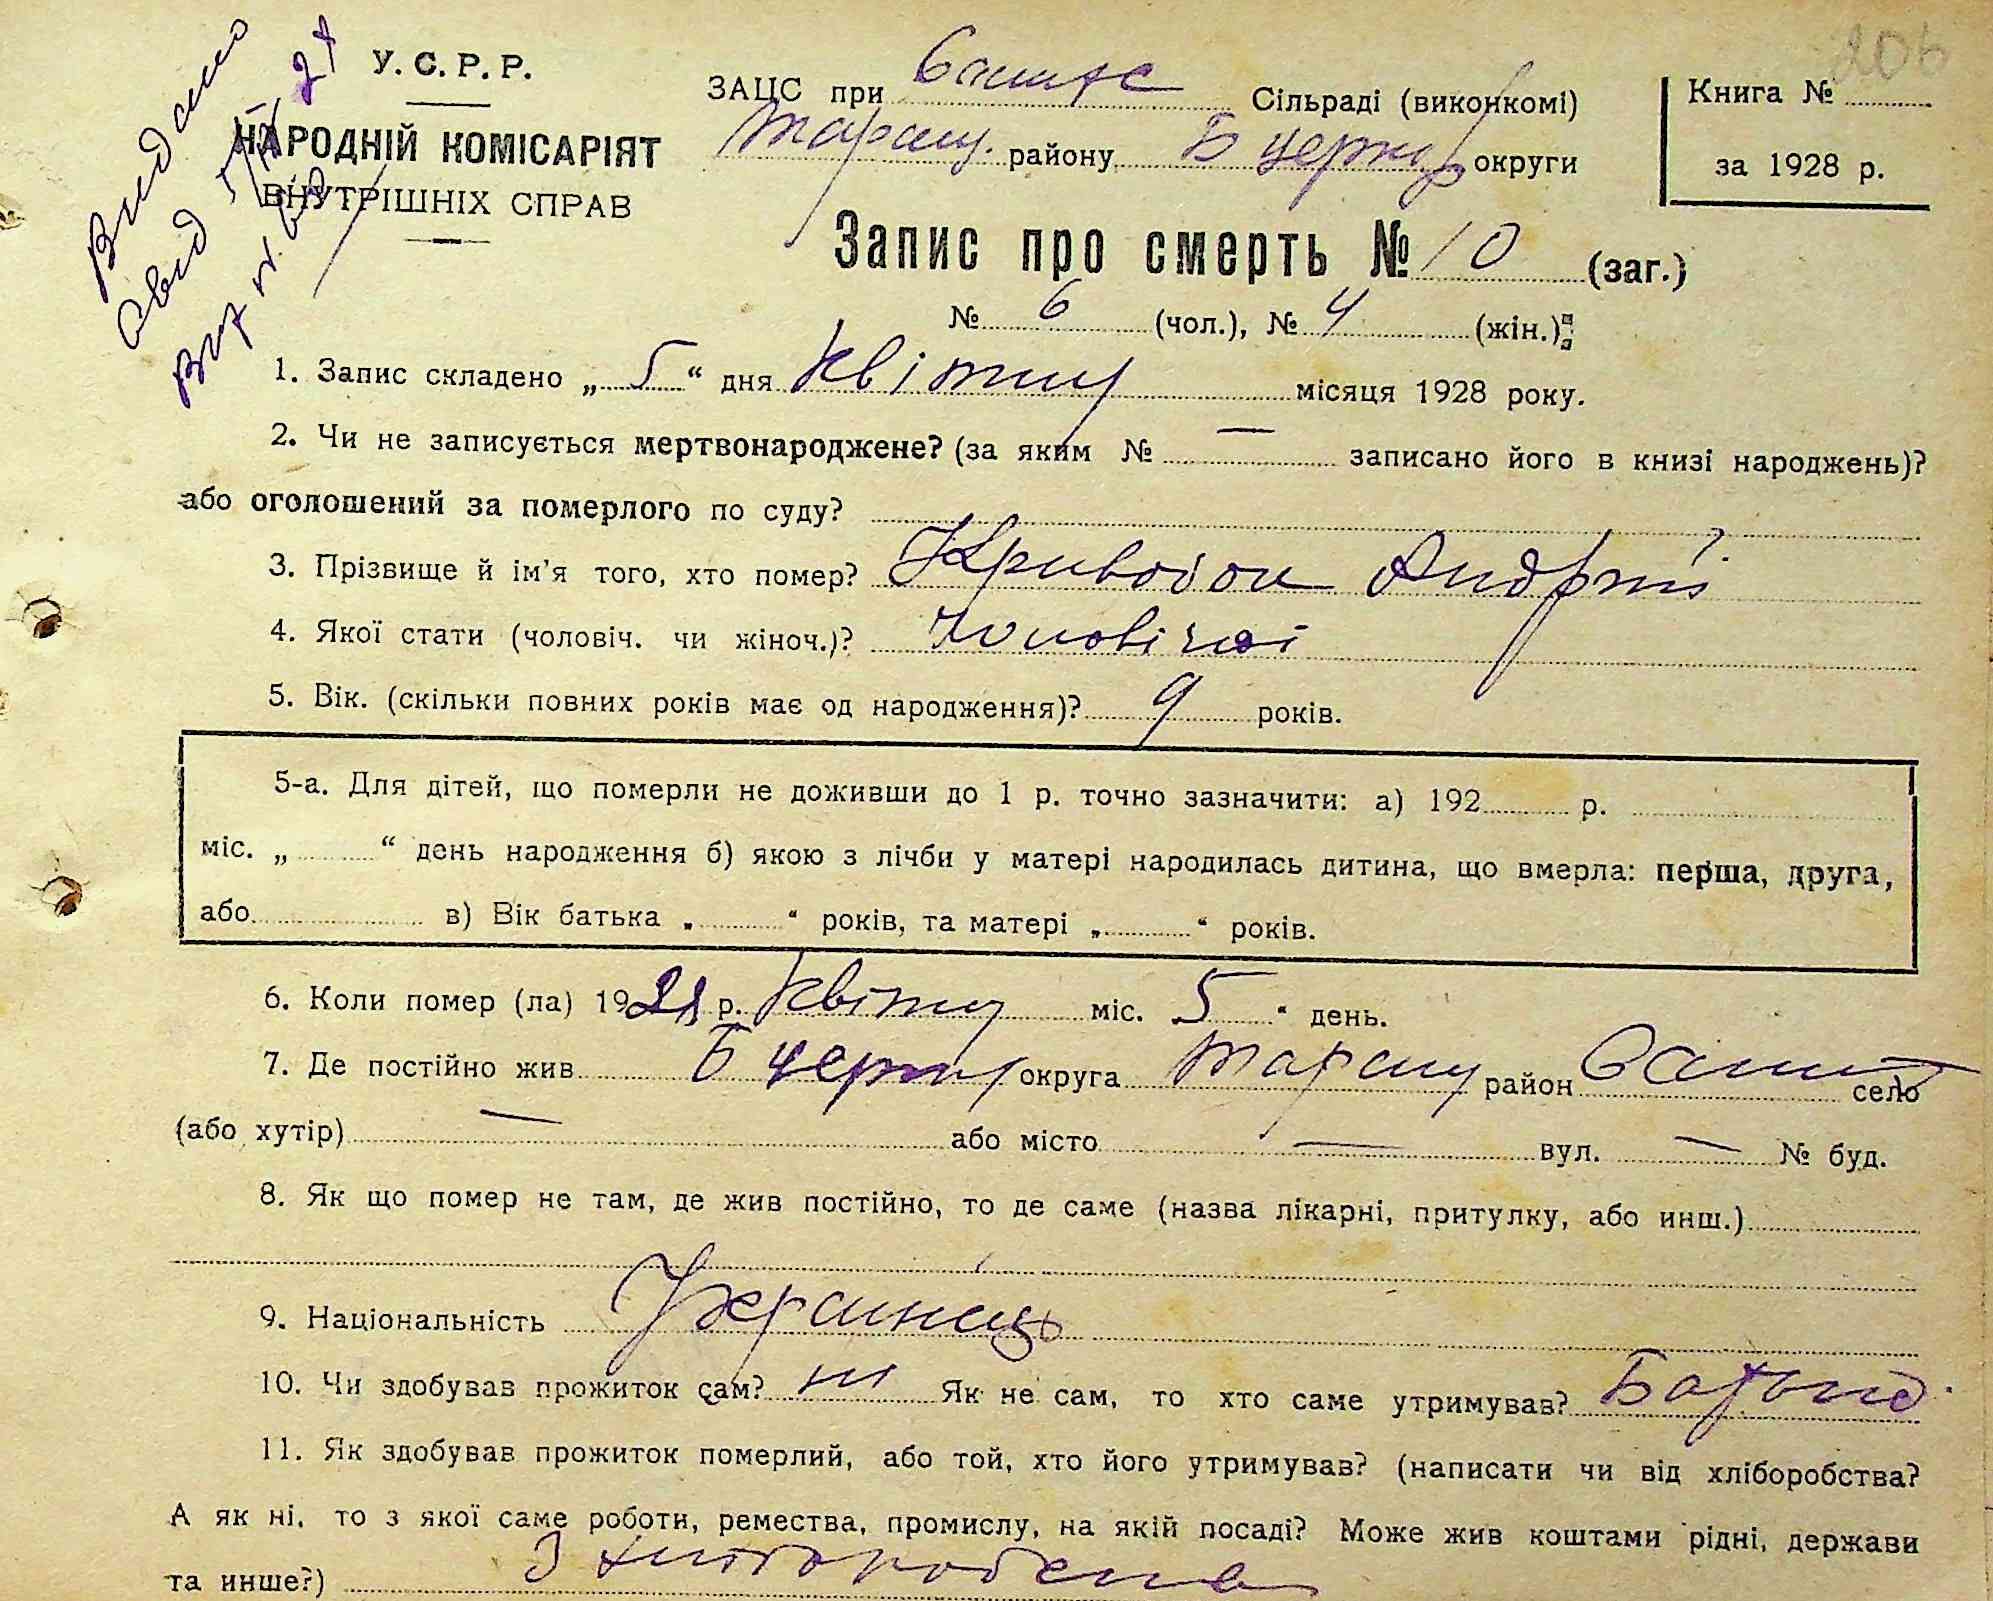 206
Видано
У. С. Р. Р.
НАРОДНІЙ КОМІСАРІЯТ
ВНУТРІШНІХ СПРАВ
ЗАЦС при Сільраді (виконкомі)
Таращ. району Б церков округи
Книга №
за 1928 р.
Запис про смерть № 10 (заг.)
№ 6 (чол.), № 4 (жін.)
1. Запис складено „ 5 “ дня Квітня місяця 1928 року.
2. Чи не записується мертвонароджене? (за яким № — записано його в книзі народжень)?
або оголошений за померлого по суду?
3. Прізвище й ім'я того, хто помер? Андрій
4. Якої стати (чоловіч. чи жіноч.)? Чоловічої
5. Вік. (скільки повних років має од народження)? 9 років.
5-а. Для дітей, що померли не доживши до 1 р. точно зазначити: а) 192 р.
міс. „ “ день народження б) якою з лічби у матері народилась дитина, що вмерла: перша, друга,
або в) Вік батька „ “ років, та матері „ “ років.
6. Коли помер (ла) 1928 р. Квітня міс. 5 “ день.
7. Де постійно жив Б церков округа Таращ район село
(або хутір) — або місто — вул. — № буд.
8. Як що помер не там, де жив постійно, то де саме (назва лікарні, притулку, або инш.)
9. Національність Українець
10. Чи здобував прожиток сам? ні Як не сам, то хто саме утримував? Батько
11. Як здобував прожиток померлий, або той, хто його утримував? (написати чи від хліборобства?
А як ні, то з якої саме роботи, ремества, промислу, на якій посаді? Може жив коштами рідні, держави
та инше?) З хліборобства